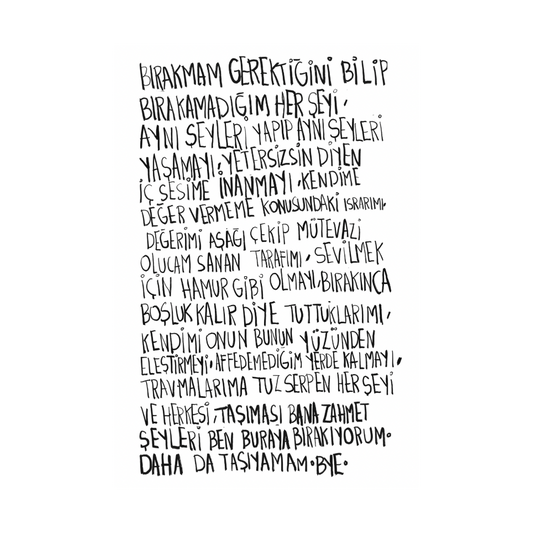 BIRAKMAM GEREKTİĞİNİ BİLİP
BIRAKAMADIĞIM HER ŞEYİ,
AYNI ŞEYLERİ YAPIP AYNI ŞEYLERİ
YAŞAMAYI, YETERSİZSİN DİYEN
İÇ SESİME İNANMAYI, KENDİME
DEĞER VERMEME KONUSUNDAKİ ISRARIMI,
DEĞERİMİ AŞAĞI ÇEKİP MÜTEVAZİ
OLUCAM SANAN TARAFIMI, SEVİLMEK
İÇİN HAMUR GİBİ OLMAYI, BIRAKINCA
BOŞLUK KALIR DİYE TUTTUKLARIMI,
KENDİMİ ONUN BUNUN YÜZÜNDEN
ELEŞTİRMEYİ, AFFEDEMEDİĞİM YERDE KALMAYI,
TRAVMALARIMA TUZ SERPEN HER ŞEYİ
VE HERKESİ, TAŞIMASI BANA ZAHMET
ŞEYLERİ BEN BURAYA BIRAKIYORUM.
DAHA DA TAŞIYAMAM. BYE.